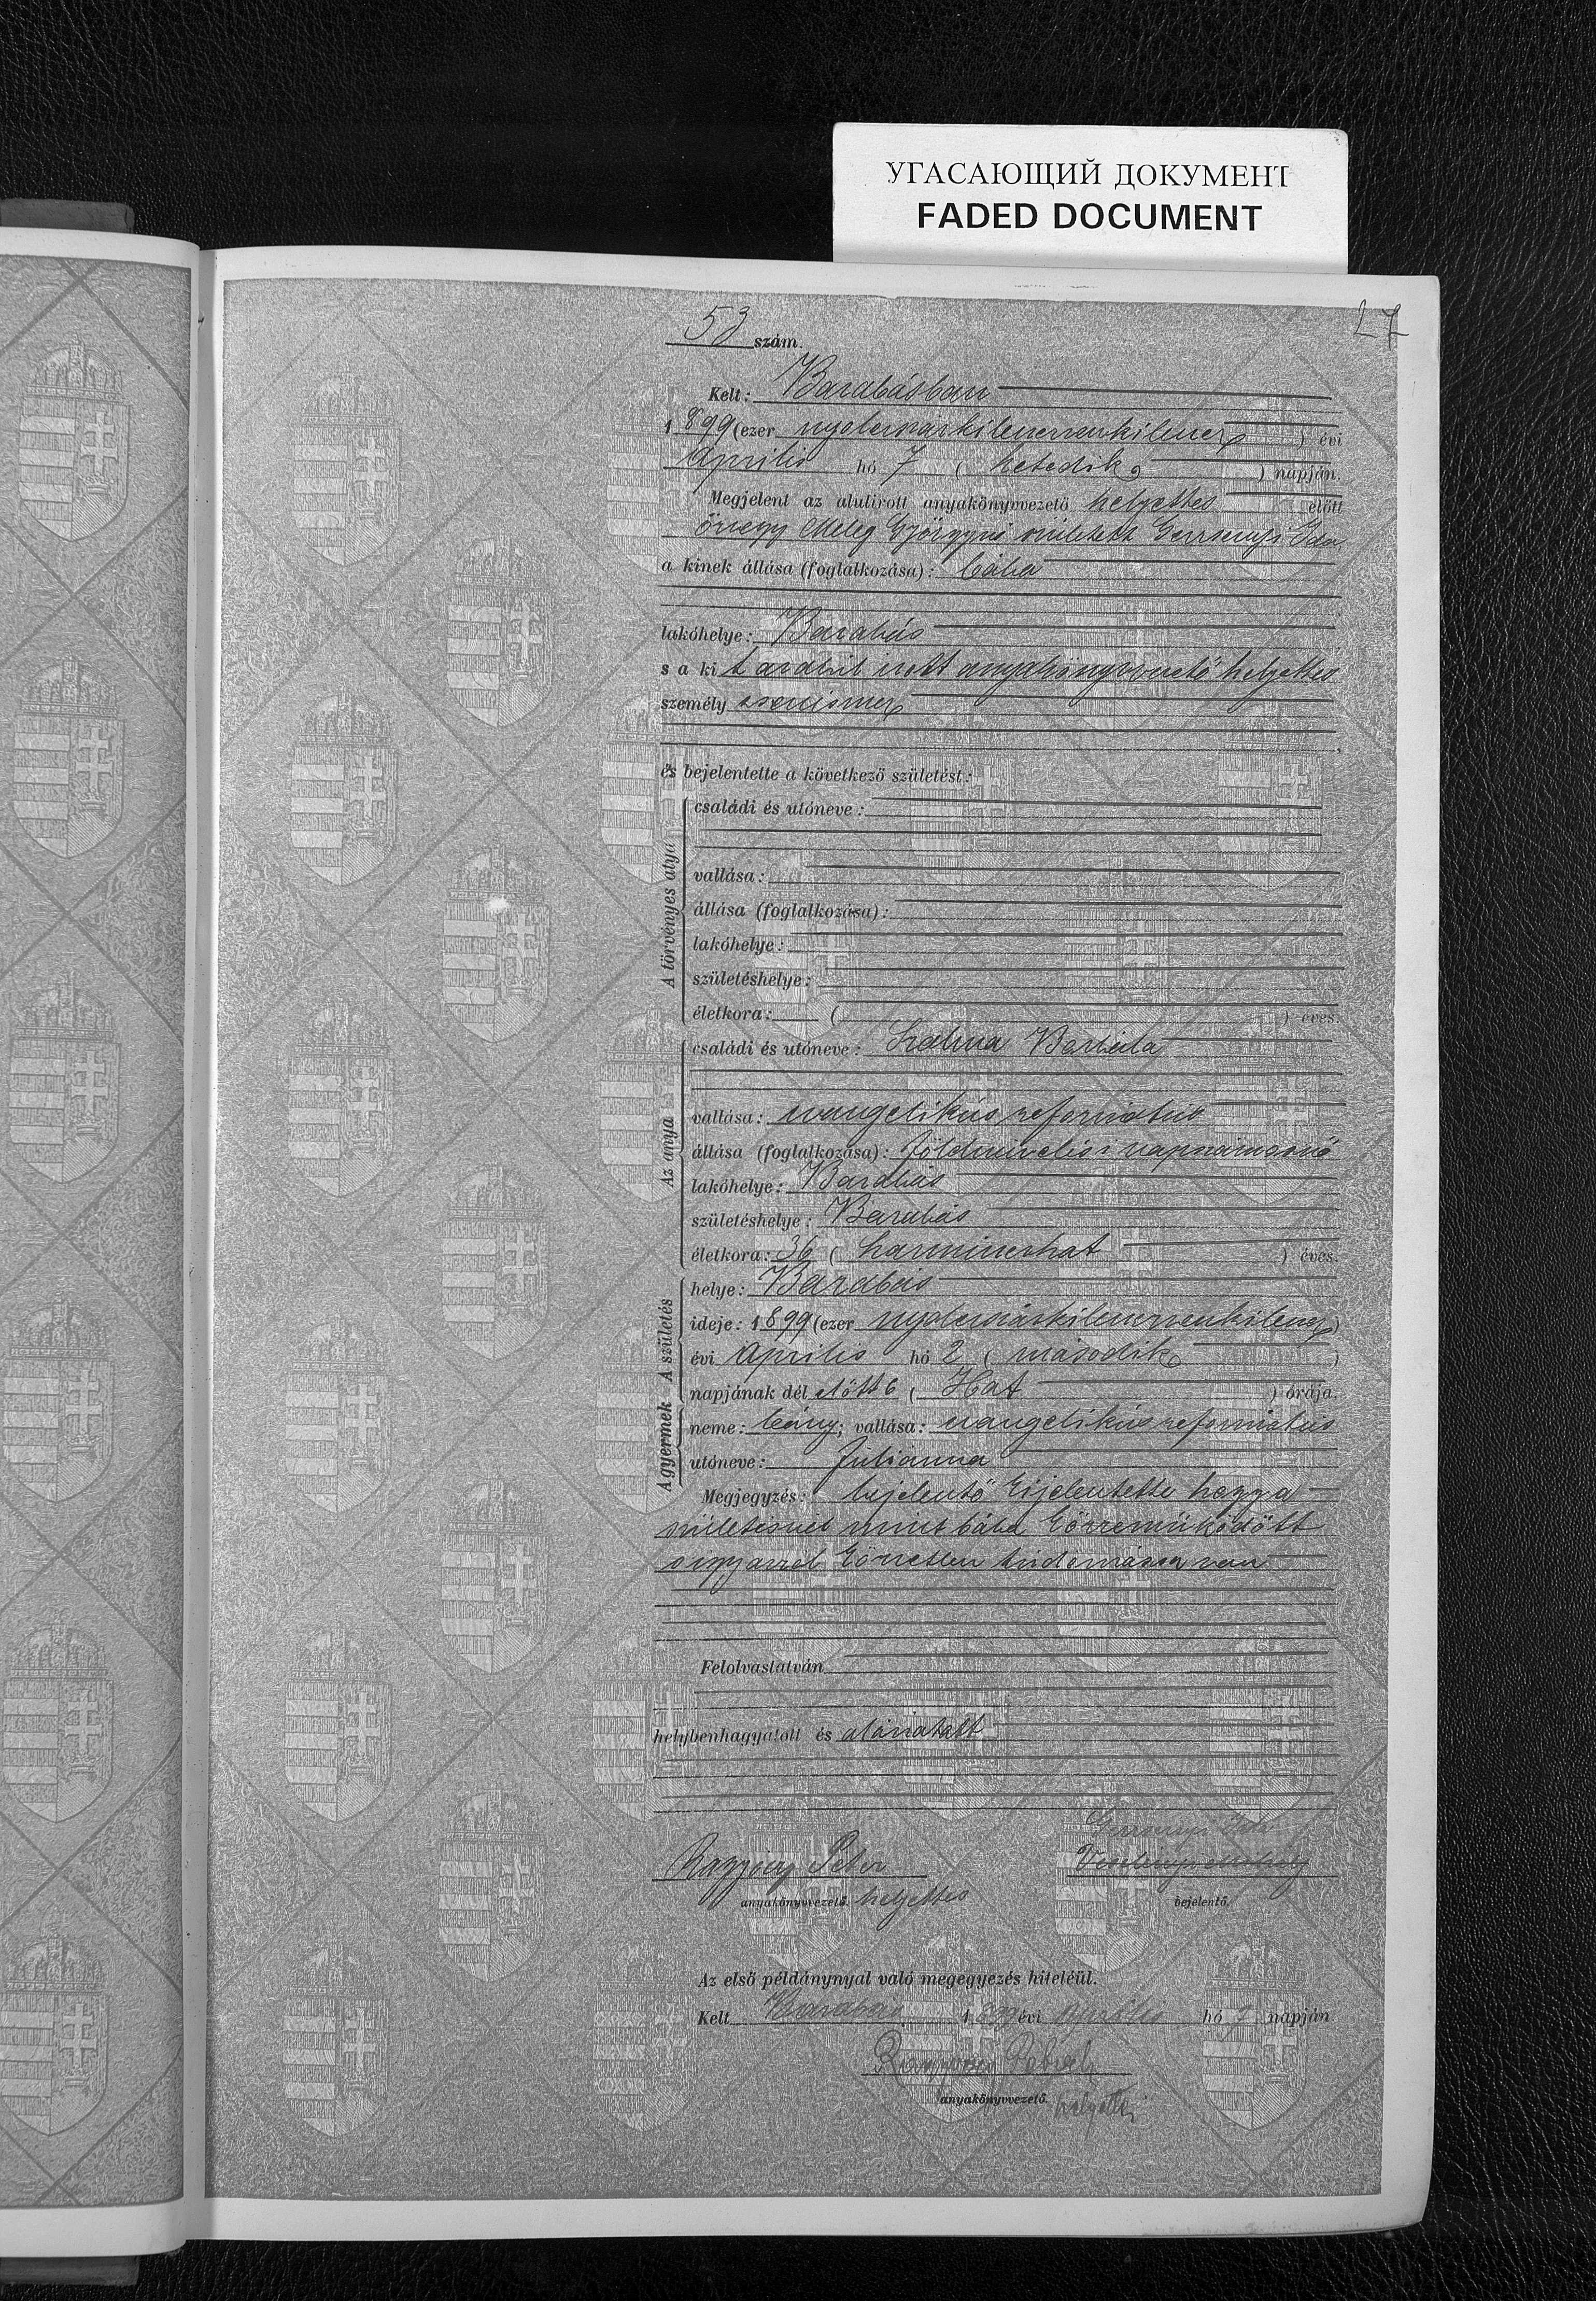 УГАСАЮЩИЙ ДОКУМЕНТ
FADED DOCUMENT
27
53 szám.
Kelt: Barabásban
1899 (ezer nyolcszázkilencvenkilenc) évi
április hó 7 (hetedik) napján.
Megjelent az alulirott anyakönyvvezető helyettes előtt
özvegy Meleg Györgyné született Ida
a kinek állása (foglalkozása): bába
lakóhelye: Barabás
s a kit az alul irott anyakönyvvezető helyettes
személyesen ismer
és bejelentette a következő születést:
A törvényes atya
családi és utóneve:
vallása:
állása (foglalkozása):
lakóhelye:
születéshelye:
életkora: ( ) éves.
Az anya
családi és utóneve: Borbála
vallása: evangelikus református
állása (foglalkozása): földmivelési napszámosnő
lakóhelye: Barabás
születéshelye: Barabás
életkora: 36 (harminczhat) éves.
A születés
helye: Barabás
ideje: 1899 (ezer nyolcszázkilencvenkilenc)
évi április hó 2 (második)
napjának dél előtt 6 (Hat) órája.
A gyermek
neme: leány; vallása: evangelikus református
utóneve: Juliánna
Megjegyzés: bejelentő kijelentette hogy a
születésnél mint bába közreműködött
s igy arról közvetlen tudomása van
Felolvastatván
helybenhagyatott és aláiratott
Ida
Péter
anyakönyvvezető. helyettes
bejelentő.
Az első példánynyal való megegyezés hiteléül.
Kelt Barabás 1899 évi április hó 7 napján
anyakönyvvezető. helyettes